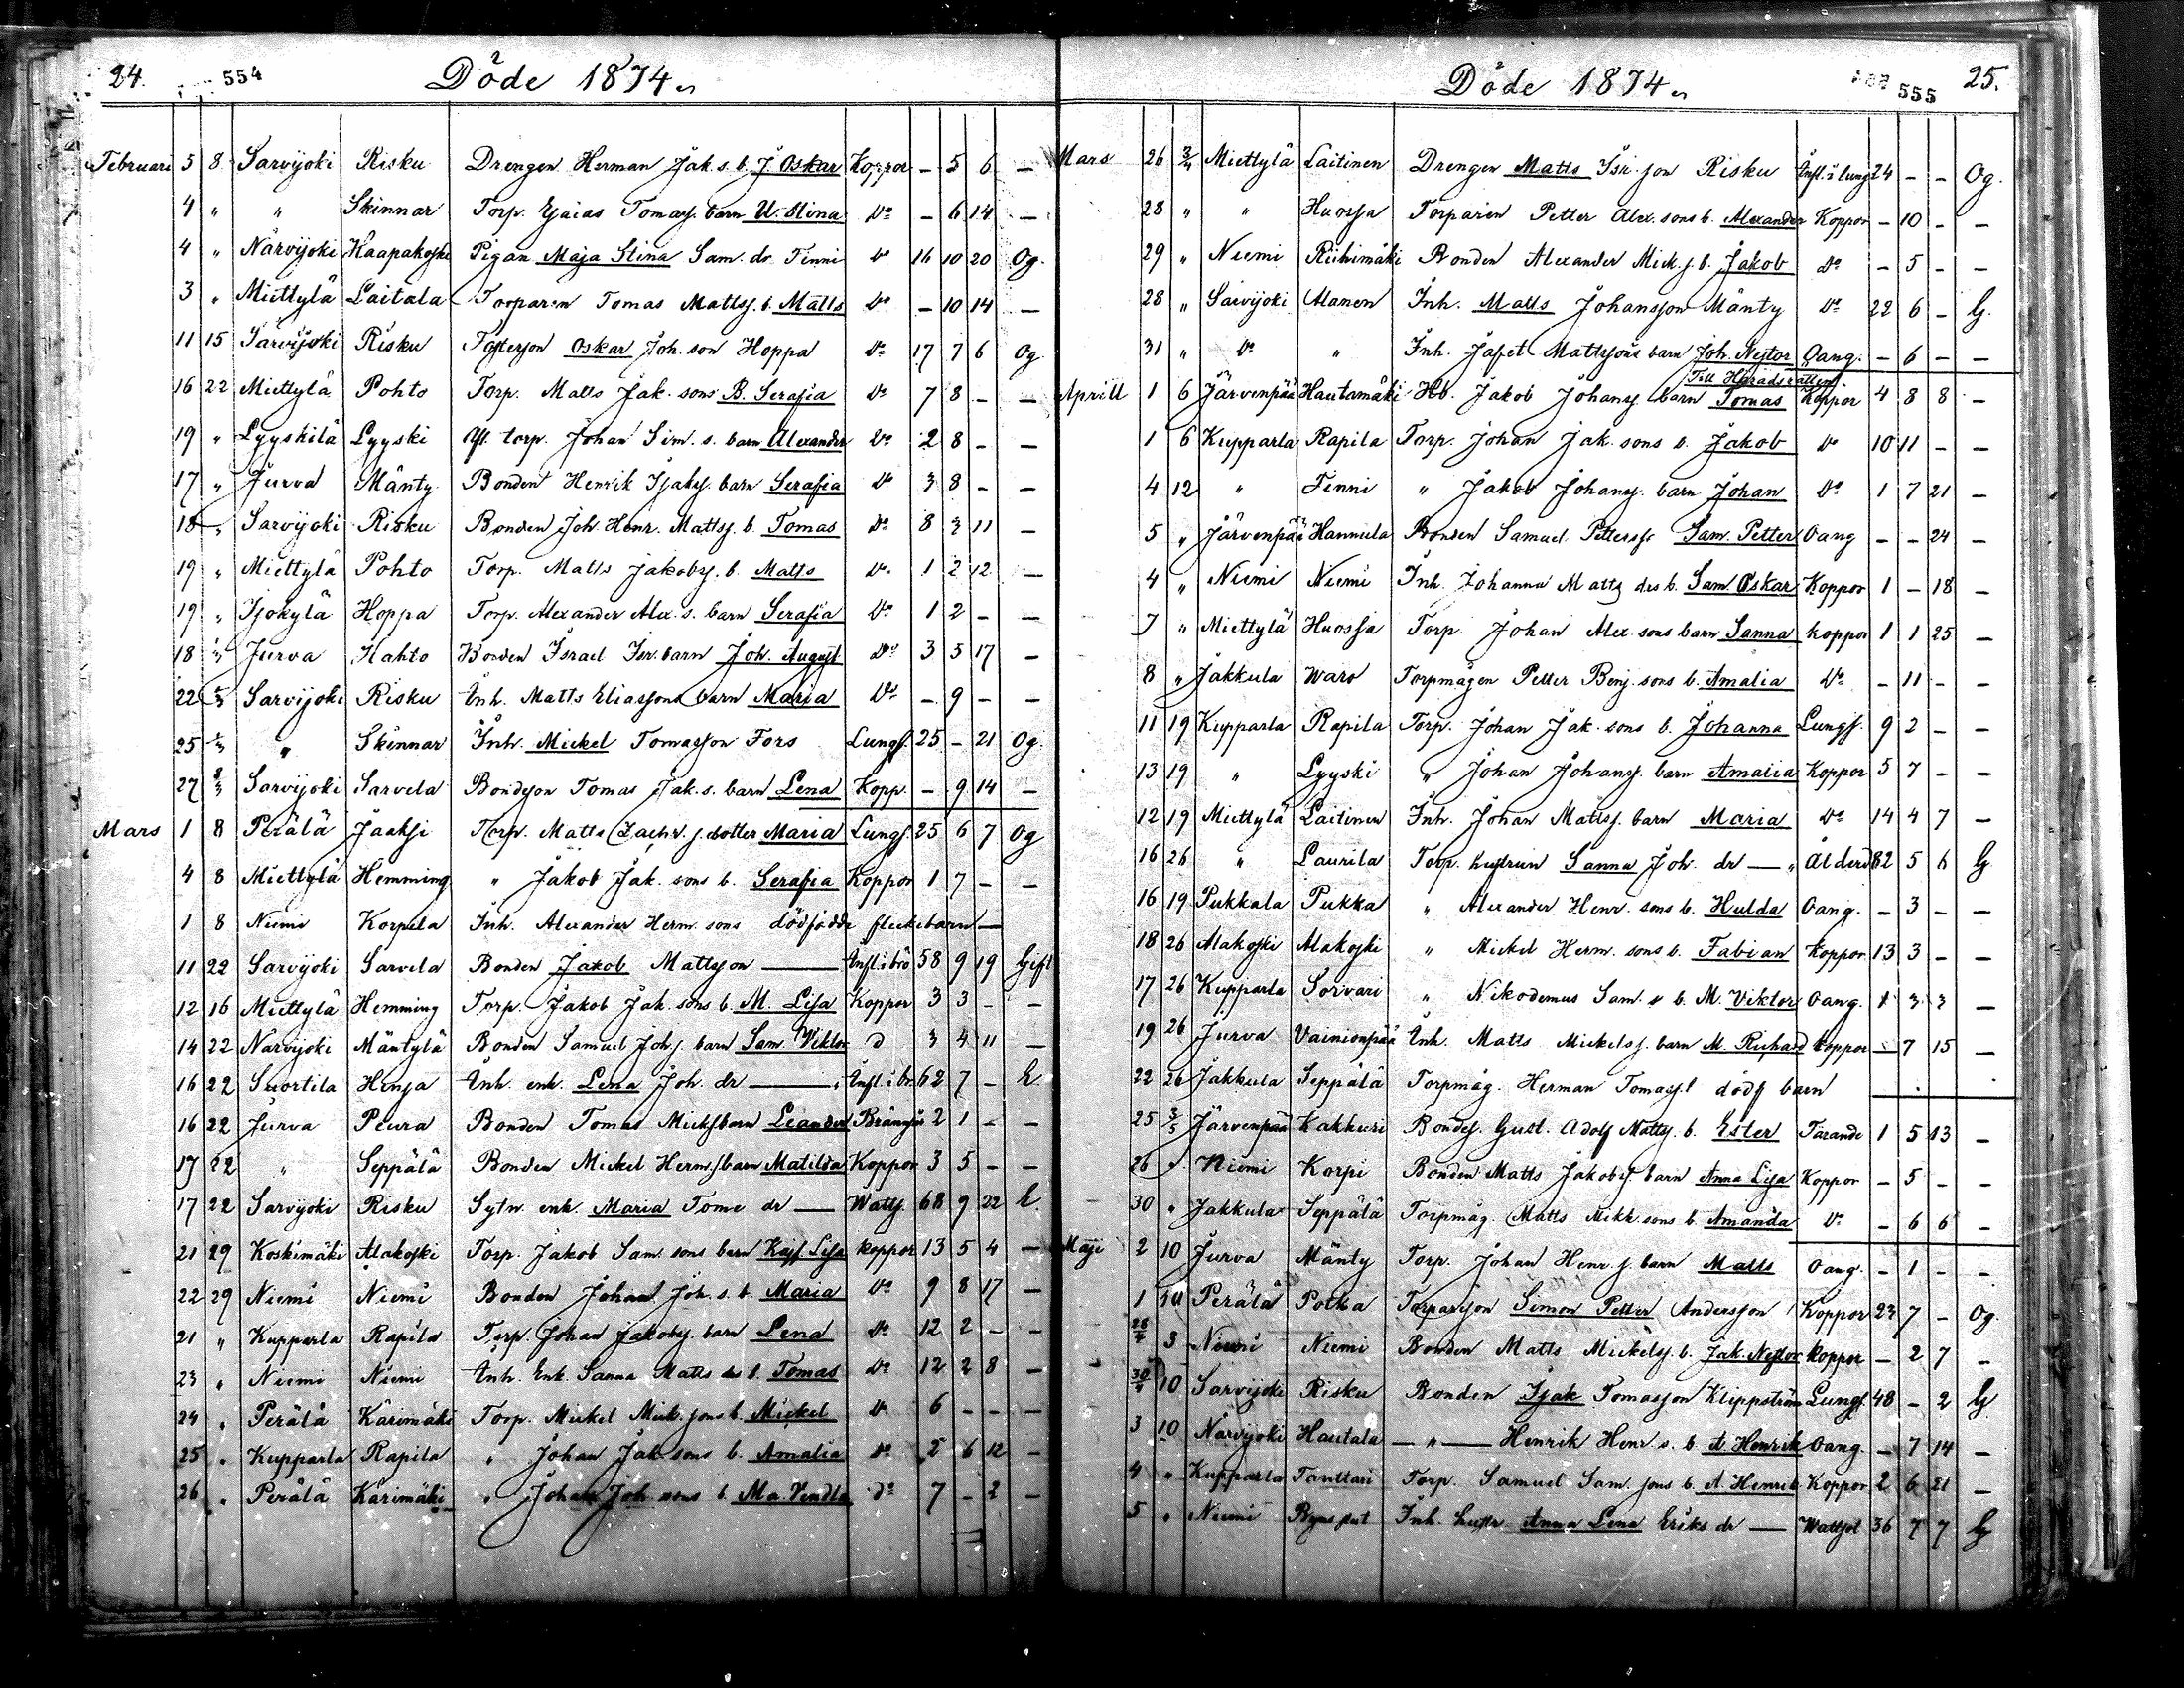 24. 554 Döde 1874.
Februari 5 8 Sarvijoki Risku Drengen Herman Jak. s. b. J. Oskar Koppor - 5 6 -
4 " " Skinnar Torp. Esaias Tomass. barn U. Stina Do - 6 14 -
4 " Närvijoki Kaapakoski Pigan Maja Stina Sam. dr Tinni Do 16 10 20 Og.
3 " Miettylä Laitala Torparen Tomas Mattss. b. Matts Do - 10 14 -
11 15 Sarvijoki Risku Fosterson Oskar Joh. son Hoppa Do 17 7 6 Og
16 22 Miettylä Pohto Torp. Matts Jak. sons B. Serafia Do 7 8 - -
19 " Lyyskilä Lyyski Afl. torp. Johan Sim. s. barn Alexander Do 2 8 - -
17 " Jurva Mänty Bonden Henrik Isaks. barn Serafia Do 3 8 - -
18 " Sarvijoki Risku Bonden Joh. Henr. Mattss. b. Tomas Do 8 3 11 -
19 " Miettylä Pohto Torp. Matts Jakobs. b. Matts Do 1 2 12 -
19 " Isokylä Hoppa Torp. Alexander Alex. s. barn Serafia Do 1 2 - -
18 1/3 Jurva Hahto Bonden Israel Isr. barn Joh. August Do 3 5 17 -
22 1/3 Sarvijoki Risku Inh. Matts Eliassons barn Maria Do - 9 - -
25 1/3 " Skinnar Inh. Mickel Tomasson Fors Lungs. 25 - 21 Og.
27 8/3 Sarvijoki Sarvela Bondeson Tomas Jak. s. barn Lena Kopp. - 9 14 -
Mars 1 8 Perälä Jaaksi Torp. Matts Zachr. s. dotter Maria Lungs. 25 6 7 Og
4 8 Miettylä Hemming " Jakob Jak. sons b. Serafia Koppor 1 7 - -
1 8 Niemi Korpela Inh. Alexander Herm. sons dödfödde flickebarn -
11 22 Sarvijoki Sarvela Bonden Jakob Mattsson - Infl. i brö 58 9 19 Gift
12 16 Miettylä Hemming Torp. Jakob Jak. sons b. M. Lisa Koppor 3 3 - -
14 22 Närvijoki Mäntylä Bonden Samuel Johs. barn Sam. Viktor d 3 4 11 -
16 22 Suortila Hinsa Inh. enk. Lena Joh. dr - Infl. i br. 62 7 - E.
16 22 Jurva Peura Bonden Tomas Micks barn Leander 2 1 - -
17 22 " Seppälä Bonden Mickel Herms. barn Matilda Koppor 3 5 - -
17 22 Sarvijoki Risku Sytn. enk. Maria Tome dr - Watts. 68 9 22 E.
21 29 Koskimäki Alakoski Torp. Jakob Sam. sons barn Kajs. Lisa koppor 13 5 4 -
22 29 Niemi Niemi Bonden Johan Joh. s. b. Maria Do 9 8 17 -
21 " Kupparla Rapila Torp. Johan Jakobs. barn Lena Do 12 2 - -
23 " Niemi Niemi Inh. Enk. Sanna Matts drs b. Tomas Do 12 2 8 -
24 " Perälä Karimäki Torp. Mickel Mick. sons b. Mickel Do 6 - - -
25 " Kupparla Rapila " Johan Jak. sons b. Amalia Do 5 6 12 -
26 " Perälä Karimäki " Johan Joh. sons b. Ma. Vendla do 7 - 2 -
Döde 1874. 555 25.
Mars 26 3/4 Miettylä Laitinen Drengen Matts Isr. son Risku Infl. i lung 24 - - Og.
28 " " Huossa Torparen Petter Alex. sons b. Alexander Koppor - 10 - -
29 " Niemi Riihimäki Bonden Alexander Mick. s. b. Jakob Do - 5 - -
28 " Sarvijoki Alanen Inh. Matts Johansson Mänty Do 22 6 - G.
31 " Do " Inh. Jafet Mattssons barn Joh. Nestor Oang. - 6 - -
Till Häradsrätten
Aprill 1 6 Järvenpää Hautamäki Hb. Jakob Johanss. barn Tomas Koppor 4 8 8 -
1 6 Kupparla Rapila Torp. Johan Jak. sons b. Jakob Do 10 11 - -
4 12 " Tinni " Jakob Johanss. barn Johan Do 1 7 21 -
5 " Järvenpää Hannula Bonden Samuel Petterss. Sam. Petter Oang - - 24 -
4 " Niemi Niemi Inh. Johanna Matts drs b. Sam. Oskar Koppor 1 - 18 -
7 " Miettylä Huossa Torp. Johan Alex. sons barn Sanna koppor 1 1 25 -
8 " Jakkula Waro Torpmågen Petter Benj. sons b. Amalia Do - 11 - -
11 19 Kupparla Rapila Torp. Johan Jak. sons b. Johanna Lungs. 9 2 - -
13 19 " Lyyski " Johan Johans. barn Amalia Koppor 5 7 - -
12 19 Miettylä Laitinen Inh. Johan Mattss. barn Maria Do 14 4 7 -
16 26 " Laurila Torp. hustrun Sanna Joh. dr - " Ålderd 82 5 6 G
16 19 Pukkala Pukka " Alexander Henr. sons b. Hulda Oang. - 3 - -
18 26 Alakoski Alakoski " Mickel Herm. sons b. Fabian Koppor 13 3 - -
17 26 Kupparla Sorvari " Nikodemus Sam. s b. M. Viktor Oang. 1 3 3 -
19 26 Jurva Vainionpää Inh. Matts Mickelss. barn M. Richard koppor - 7 15 -
22 26 Jakkula Seppälä Torpmåg. Herman Tomass. dödf barn
25 3/5 Järvenpää Kakkuri Bondes. Gust. Adolf Mattss. b. Ester Tärande 1 5 13 -
26 " Niemi Korpi Bonden Matts Jakobs. barn Anna Lisa Koppor - 5 - -
30 " Jakkula Seppälä Torpmåg. Matts Mikk. sons b. Amanda Do - 6 6 -
Maji 2 10 Jurva Mänty Torp. Johan Henr. s. barn Matts Oang. - 1 - -
1 10 Perälä Potka Torparson Simon Petter Andersson Koppor 23 7 - Og.
28/4 3 Niemi Niemi Bonden Matts Mickelss. b. Jak. Nestor koppor - 2 7 -
30/4 10 Sarvijoki Risku Bonden Isak Tomasson Klippström Lungs. 48 - 2 G
3 10 Närvijoki Hautala - " - Henrik Henr. s. b. A. Henrik Oang. - 7 14 -
4 " Kupparla Tanttari Torp. Samuel Sam. sons b. A. Henrik Koppor 2 6 21 -
5 " Niemi Inh. hustr. Anna Lena Eriks dr - Wattsot 36 7 7 G